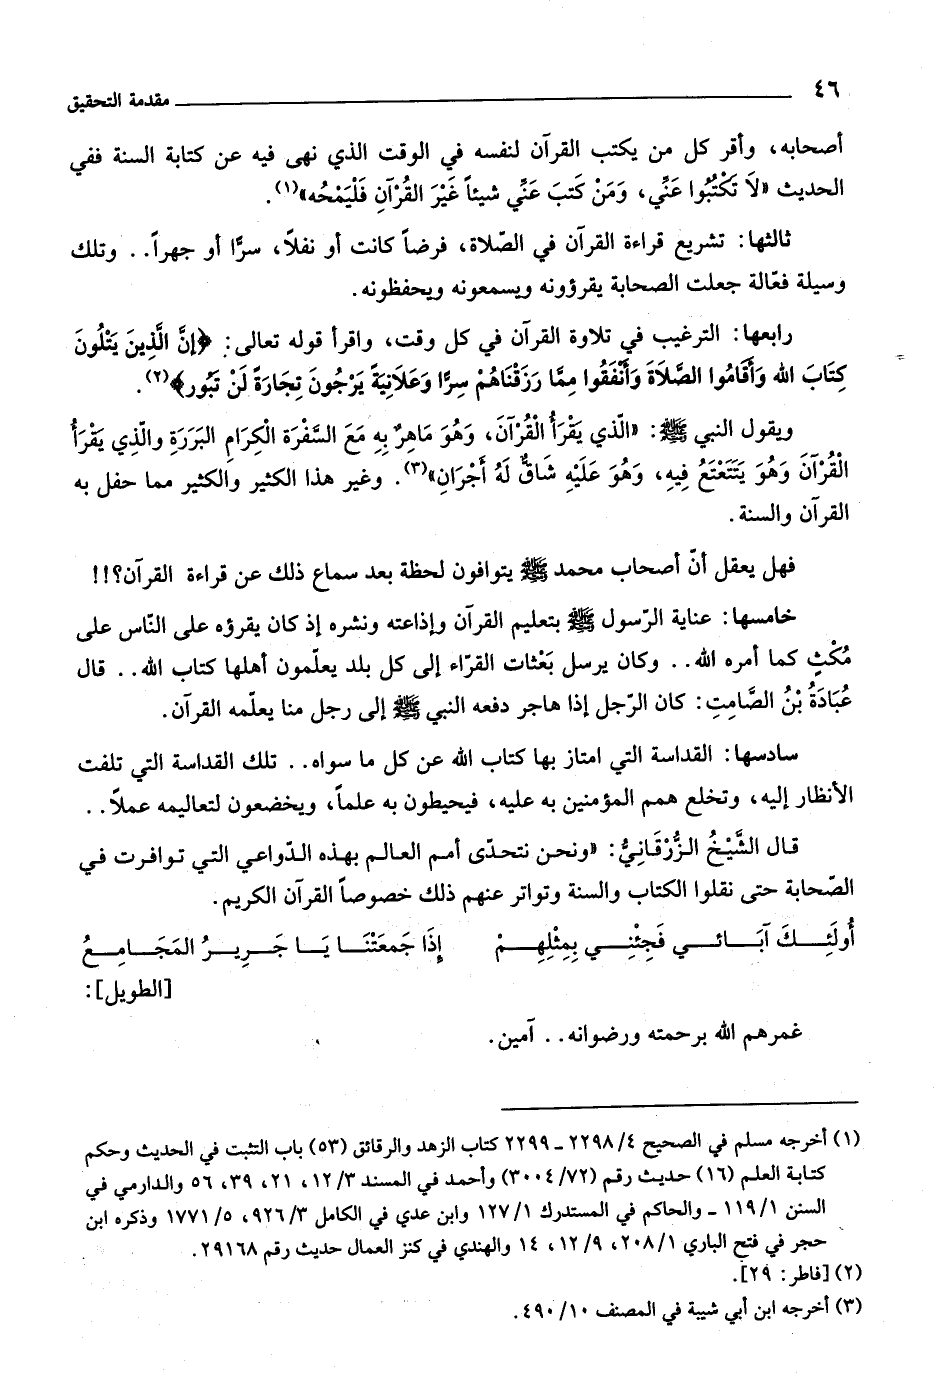 ٤٦ مقدمة التحقيق
أصحابه، وأقر كل من يكتب القرآن لنفسه في الوقت الذي نهى فيه عن كتابة السنة ففي
الحديث «لَا تَكْتُبُوا عَنِّي، وَمَنْ كَتَبَ عَنِّي شيئاً غَيْرَ القُرْآنِ فَلْيَمْحُه»(١).
ثالثها: تشريع قراءة القرآن في الصّلاة، فرضاً كانت أو نفلاً، سرًّا أو جهراً.. وتلك
وسيلة فعّالة جعلت الصحابة يقرؤونه ويسمعونه ويحفظونه.
رابعها: الترغيب في تلاوة القرآن في كل وقت، واقرأ قوله تعالى: ﴿إنَّ الَّذِينَ يَتْلُونَ
كِتَابَ الله وَأَقَامُوا الصَّلَاةَ وَأَنْفَقُوا مِمَّا رَزَقْنَاهُمْ سِرًّا وَعَلَانِيَةً يَرْجُونَ تِجَارَةً لَنْ تَبُور﴾(٢).
ويقول النبي ﷺ: «الّذي يَقْرَأُ الْقُرْآنَ، وَهُوَ مَاهِرٌ بِهِ مَعَ السَّفْرَة الْكِرَامِ البَرَرَةِ والّذِي يَقْرَأُ
الْقُرْآنَ وَهُوَ يَتَتَعْتَعُ فِيهِ، وَهُوَ عَلَيْهِ شَاقٌّ لَهُ أَجْرَانِ»(٣). وغير هذا الكثير والكثير مما حفل به
القرآن والسنة.
فهل يعقل أنّ أصحاب محمد ﷺ يتوافون لحظة بعد سماع ذلك عن قراءة القرآن؟!!!
خامسها: عناية الرّسول ﷺ بتعليم القرآن وإذاعته ونشره إذ كان يقرؤه على النّاس على
مُكْثٍ كما أمره الله.. وكان يرسل بَعْثات القرّاء إلى كل بلد يعلّمون أهلها كتاب الله.. قال
عُبَادَةُ بْنُ الصَّامِتِ: كان الرّجل إذا هاجر دفعه النبي ﷺ إلى رجل منا يعلّمه القرآن.
سادسها: القداسة التي امتاز بها كتاب الله عن كل ما سواه.. تلك القداسة التي تلفت
الأنظار إليه، وتخلع همم المؤمنين به عليه، فيحيطون به علماً، ويخضعون لتعاليمه عملاً..
قال الشَّيْخُ الزُّرْقَانِيُّ: «ونحن نتحدّى أمم العالم بهذه الدّواعي التي توافرت في
الصّحابة حتى نقلوا الكتاب والسنة وتواتر عنهم ذلك خصوصاً القرآن الكريم.
أُولَئِـــكَ آبَـــائـــي فَجِئْنِـــي بِمِثْلِهِـــمْ إِذَا جَمَعَتْنَـــا يَـــا جَـــرِيـــرُ المَجَـــامِـــعُ
[الطويل]:
غمرهم الله برحمته ورضوانه.. آمين.
(١) أخرجه مسلم في الصحيح ٤/ ٢٢٩٨ ـ ٢٢٩٩ كتاب الزهد والرقائق (٥٣) باب التثبت في الحديث وحكم
كتابة العلم (١٦) حديث رقم (٧٢/ ٣٠٠٤) وأحمد في المسند ٣/ ١٢، ٢١، ٣٩، ٥٦ والدارمي في
السنن ١/ ١١٩ ـ والحاكم في المستدرك ١/ ١٢٧ وابن عدي في الكامل ٣/ ٩٢٦، ٥/ ١٧٧١ وذكره ابن
حجر في فتح الباري ١/ ٢٠٨، ٩/ ١٢، ١٤ والهندي في كنز العمال حديث رقم ٢٩١٦٨.
(٢) [فاطر: ٢٩].
(٣) أخرجه ابن أبي شيبة في المصنف ١٠/ ٤٩٠.